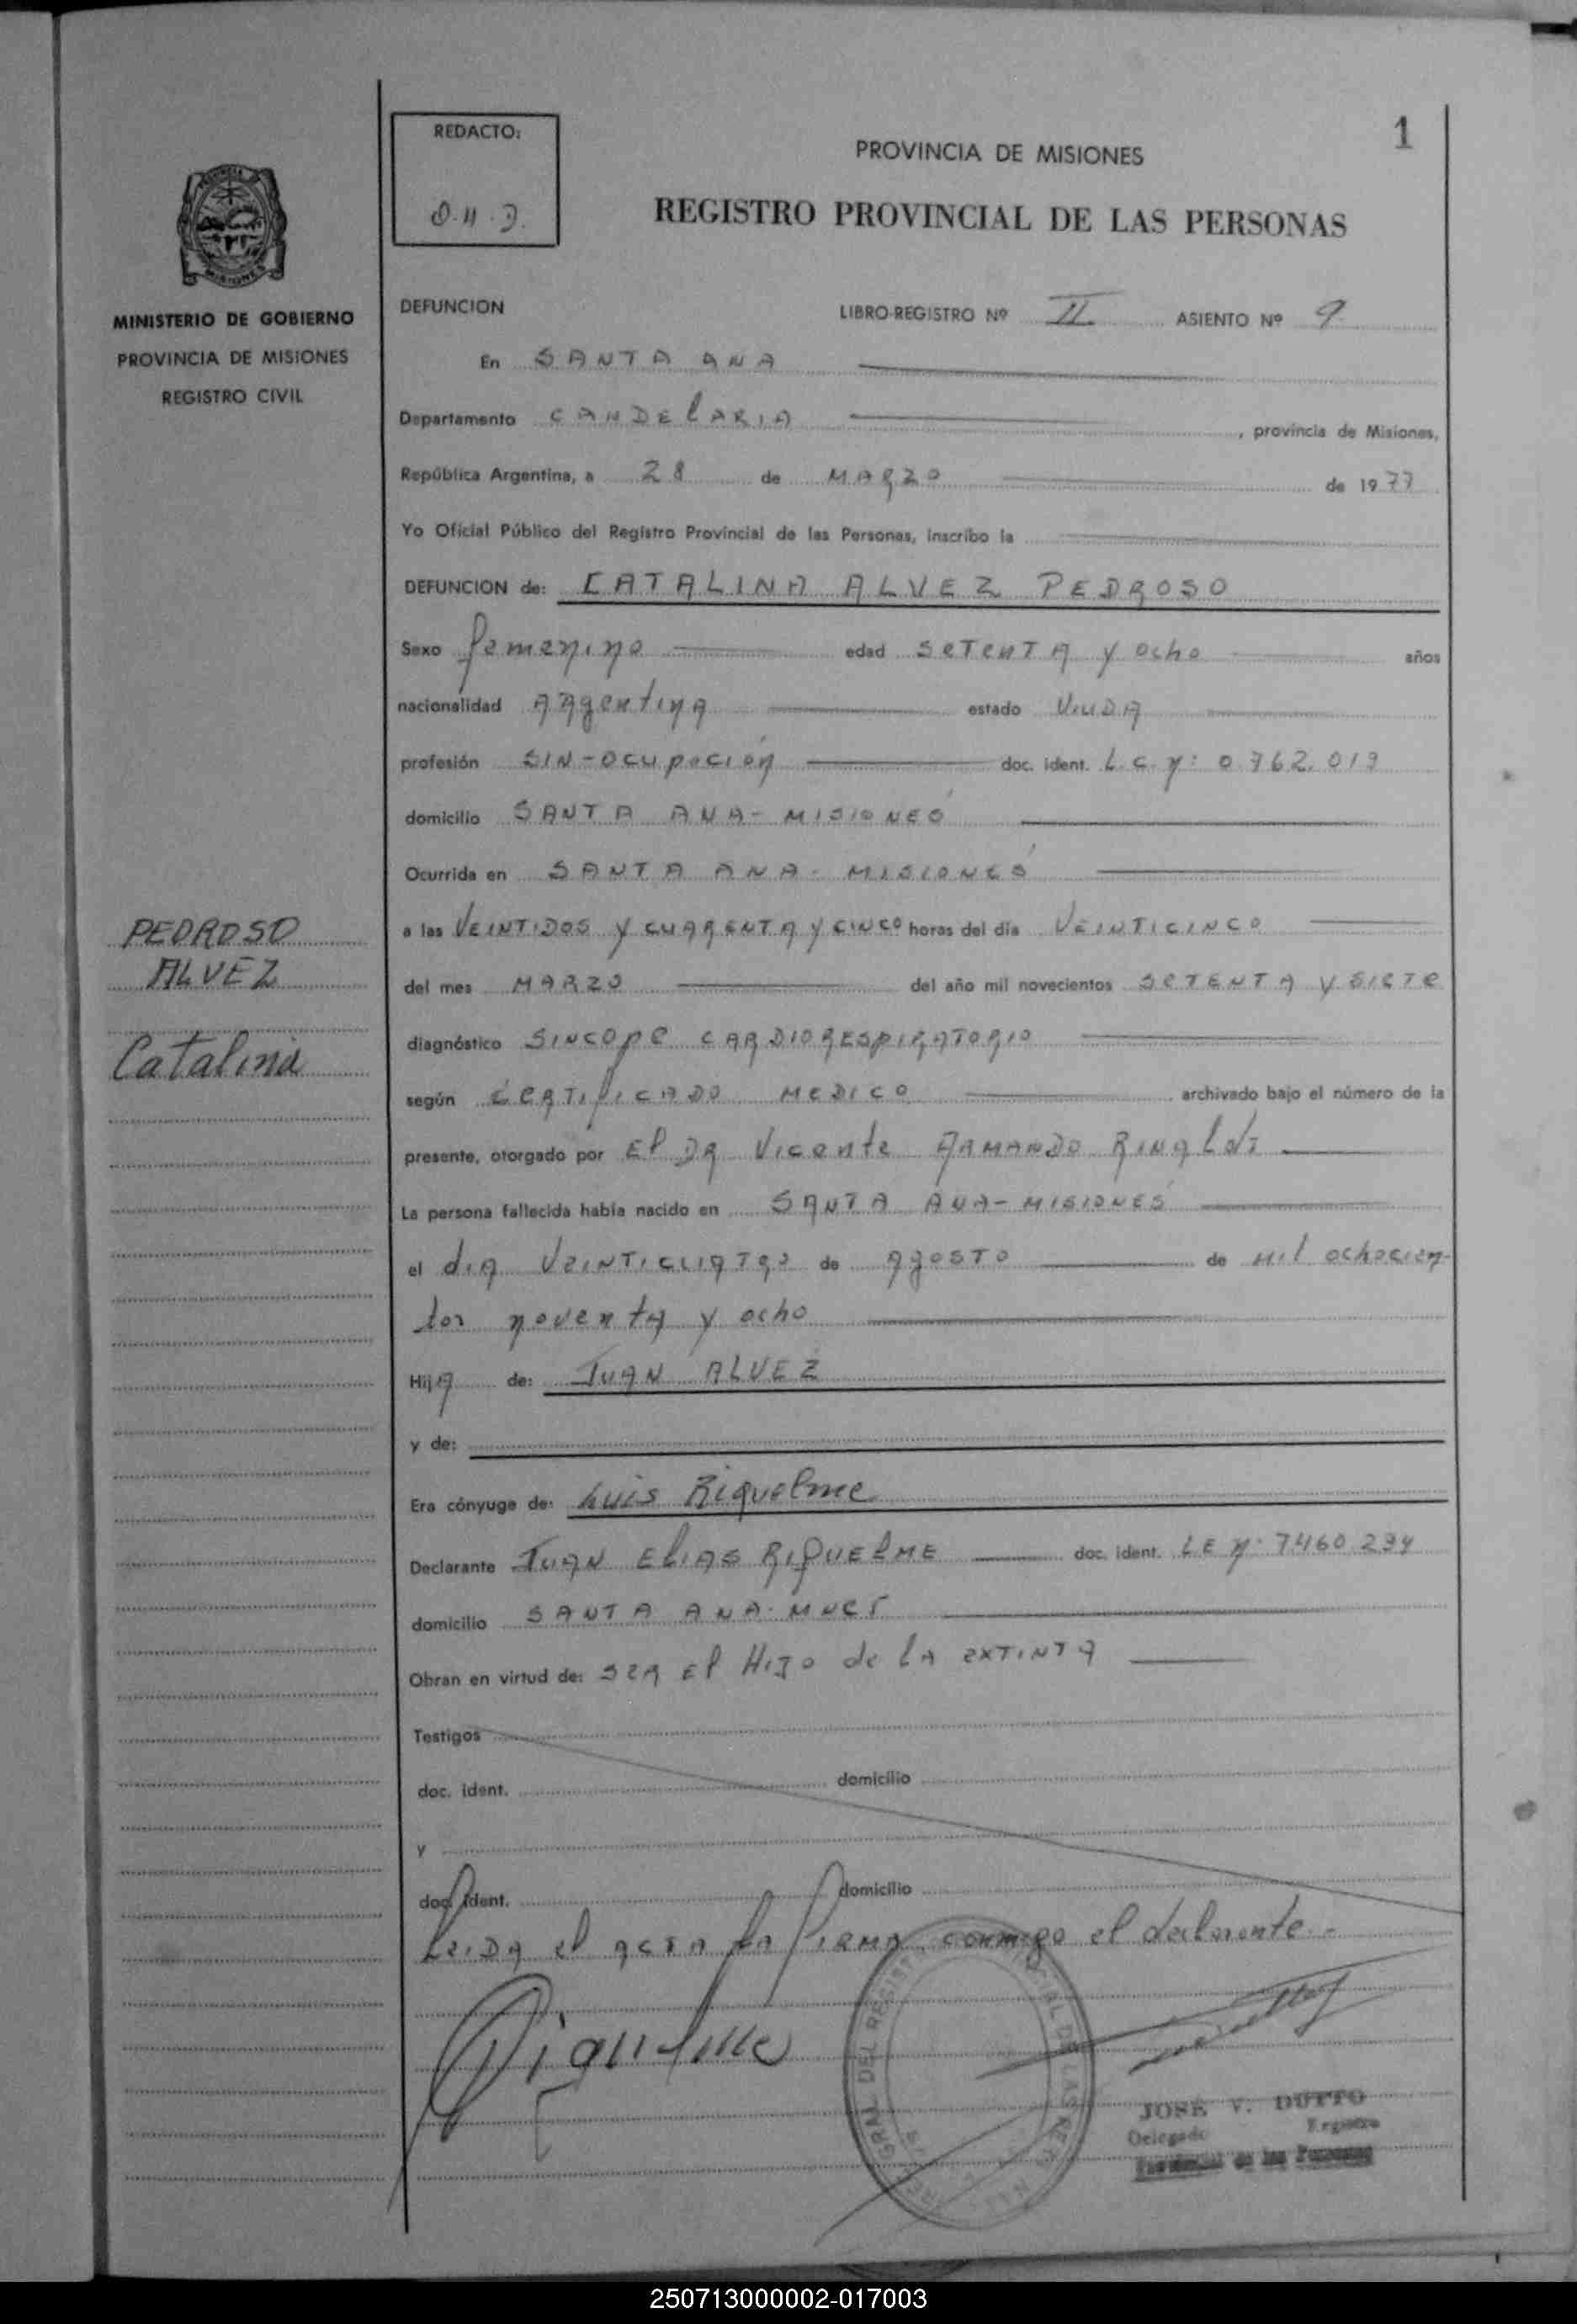 1
REDACTO:
O.H.D.
PROVINCIA DE MISIONES
REGISTRO PROVINCIAL DE LAS PERSONAS
MINISTERIO DE GOBIERNO
PROVINCIA DE MISIONES
REGISTRO CIVIL
DEFUNCION LIBRO-REGISTRO Nº II ASIENTO Nº 9
En SANTA ANA
Departamento CANDELARIA , provincia de Misiones,
República Argentina, a 28 de MARZO de 1977
Yo Oficial Público del Registro Provincial de las Personas, inscribo la
DEFUNCION de: CATALINA ALVEZ PEDROSO
Sexo femenino edad SETENTA y ocho años
nacionalidad Argentina estado VIUDA
profesión SIN-ocupación doc. ident. L.C.Nº: 0.762.019
domicilio SANTA ANA-MISIONES
Ocurrida en SANTA ANA-MISIONES
PEDROSO
ALVEZ
Catalina
a las VEINTIDOS y CUARENTA y CINCO horas del día VEINTICINCO
del mes MARZO del año mil novecientos SETENTA y SIETE
diagnóstico SINCOPE CARDIORESPIRATORIO
según CERTIFICADO MEDICO archivado bajo el número de la
presente, otorgado por El DR Vicente ARMANDO RINALDI
La persona fallecida había nacido en SANTA ANA-MISIONES
el dia VEINTICUATRO de AgOSTO de mil ochocien-
tos noventa y ocho
Hija de: JUAN ALVEZ
y de:
Era cónyuge de: Luis Riquelme
Declarante JUAN ELIAS RIQUELME doc. ident. LE Nº 7460.294
domicilio SANTA ANA-MNES
Obran en virtud de: SER El HIJO de LA EXTINTA
Testigos
doc. ident. domicilio
y
doc. ident. domicilio
Leida el acta la firma conmigo el declarante.-
Riquelme
JOSÉ V. DUTTO
Delegado Registro
Provincial de las Personas
250713000002-017003